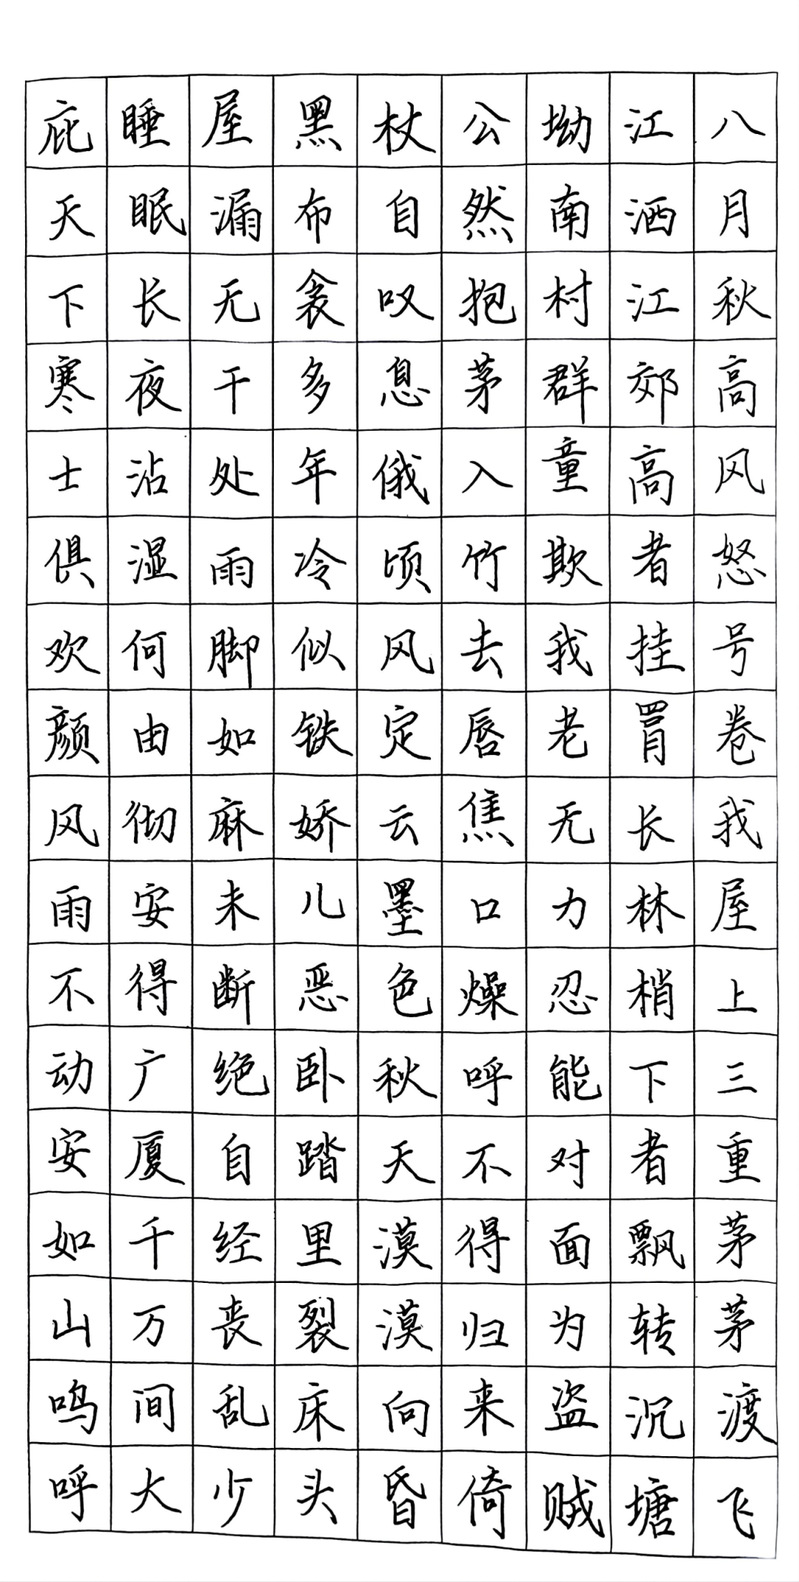 八月秋高风怒号卷我屋上三重茅茅渡飞
江洒江郊高者挂罥长林梢下者飘转沉塘
坳南村群童欺我老无力忍能对面为盗贼
公然抱茅入竹去唇焦口燥呼不得归来倚
杖自叹息俄顷风定云墨色秋天漠漠向昏
黑布衾多年冷似铁娇儿恶卧踏里裂床头
屋漏无干处雨脚如麻未断绝自经丧乱少
睡眠长夜沾湿何由彻安得广厦千万间大
庇天下寒士俱欢颜风雨不动安如山呜呼